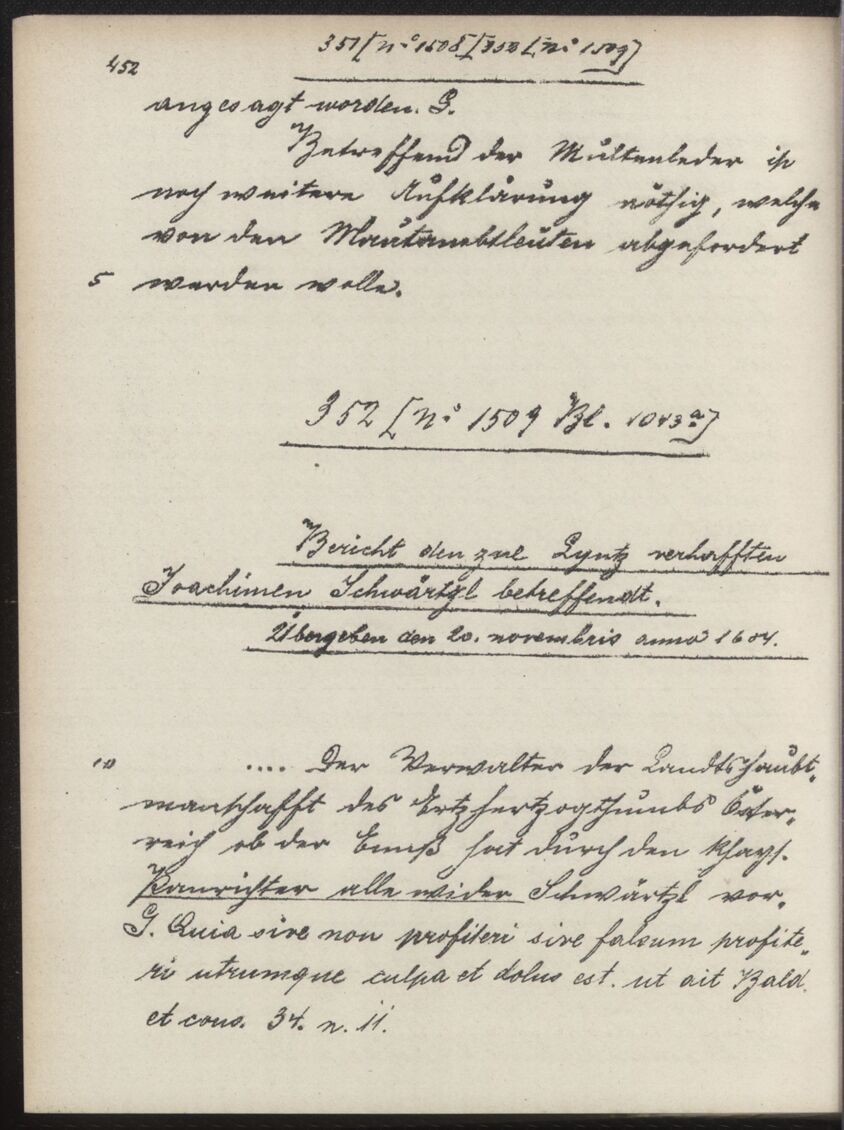 351 [N° 1508] [352 [N° 1509]
452
angesagt worden. G.
Betreffend der Multenleder ist
noch weitere Aufklärung nöthig, welche
von den Mautambtleuten abgefordert
5 werden wolle.
352 [N° 1509 Bl. 1043a]
Bericht den zue Lyntz verhafften
Joachimen Schwärtzl betreffendt.
Übergeben den 20. novembris anno 1604.
10 .... Der Verwalter der Landtshaubt„
manschafft des Ertzhertzogthumbs Öster„
reich ob der Ennß hat durch den khays.
Panrichter alle wider Schwärtzl vor„
G. Quia sive non profiteri sive falsum profite„
ri utrumque culpa et dolus est. ut ait Bald.
et cons. 34. n. 11.